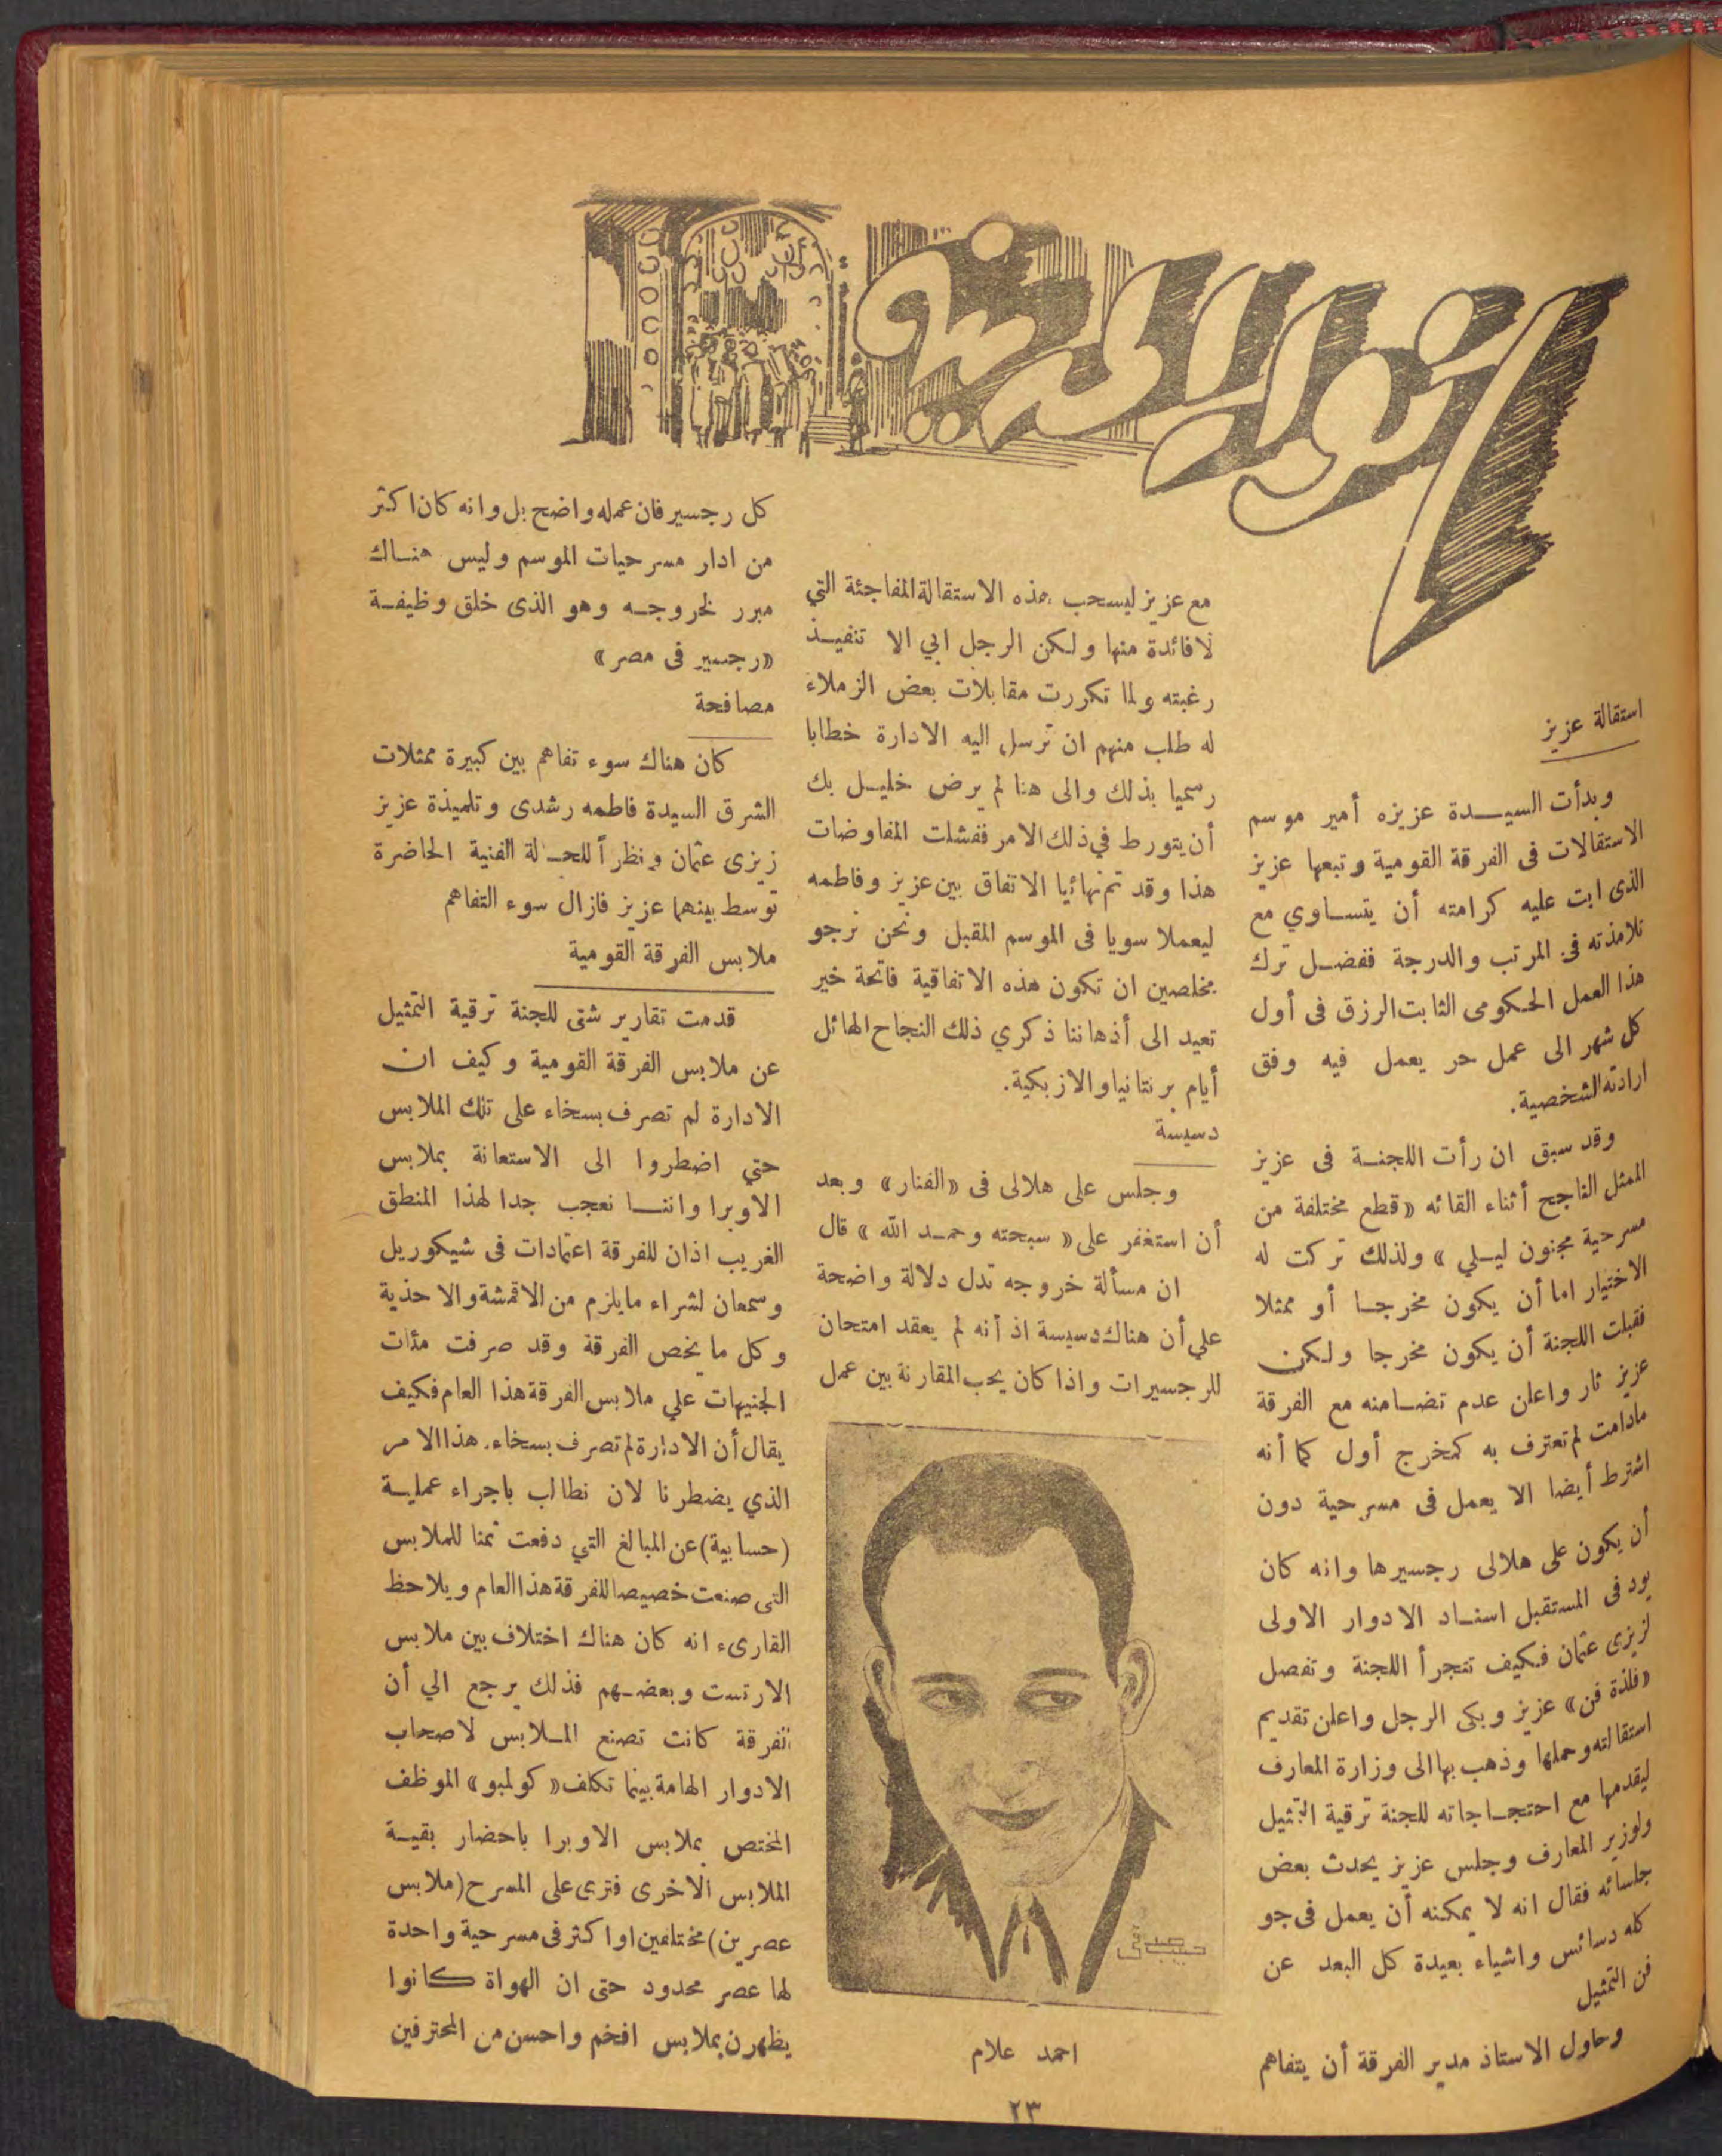 استقالة عزيز
وبدأت السيــدة عزيزه أمير موسم
الاستقالات فى الفرقة القومية وتبعها عزيز
الذى ابت عليه كرامته أن يتساوي مع
تلامذته فى المرتب والدرجة ففضل ترك
هذا العمل الحكومى الثابت الرزق فى أول
كل شهر الى عمل حر يعمل فيه وفق
ارادته الشخصية.
وقد سبق ان رأت اللجنة فى عزيز
الممثل الناجح أثناء القائه «قطع مختلفة من
مسرحية مجنون ليلي» ولذلك تركت له
الاختيار اما أن يكون مخرجا أو ممثلا
فقبلت اللجنة أن يكون مخرجا ولكن
عزيز ثار واعلن عدم تضامنه مع الفرقة
مادامت لم تعترف به كمخرج أول كما أنه
اشترط أيضا الا يعمل فى مسرحية دون
أن يكون على هلالى رجسيرها وانه كان
يود فى المستقبل اسناد الادوار الاولى
لزيزى عثمان فكيف تتجرأ اللجنة وتفصل
«فلذة فن» عزيز وبكى الرجل واعلن تقديم
استقالته وحملها وذهب بها الى وزارة المعارف
ليقدمها مع احتجاجاته للجنة ترقية التمثيل
ولوزير المعارف وجلس عزيز يحدث بعض
جلسائه فقال انه لا يمكنه أن يعمل فى جو
كله دسائس واشياء بعيدة كل البعد عن
فن التمثيل
وحاول الاستاذ مدير الفرقة أن يتفاهم
مع عزيز ليسحب هذه الاستقالة المفاجئة التي
لا فائدة منها ولكن الرجل ابي الا تنفيذ
رغبته ولما تكررت مقابلات بعض الزملاء
له طلب منهم ان ترسل اليه الادارة خطابا
رسميا بذلك والى هنا لم يرض خليل بك
أن يتورط في ذلك الامر ففشلت المفاوضات
هذا وقد تم نهائيا الاتفاق بين عزيز وفاطمه
ليعملا سويا فى الموسم المقبل ونحن نرجو
مخلصين ان تكون هذه الاتفاقية فاتحة خير
تعيد الى أذهاننا ذكري ذلك النجاح الهائل
أيام برنتانيا والازبكية.
دسيسة
وجلس على هلالى فى «الفنار» وبعد
أن استغفر على «سبحته وحمد الله» قال
ان مسألة خروجه تدل دلالة واضحة
علي أن هناك دسيسة اذ أنه لم يعقد امتحان
للرجسيرات واذا كان يحب المقارنة بين عمل
احمد علام
كل رجسير فان عمله واضح بل وانه كان اكثر
من ادار مسرحيات الموسم وليس هناك
مبرر لخروجه وهو الذى خلق وظيفة
«رجسير فى مصر»
مصافحة
كان هناك سوء تفاهم بين كبيرة ممثلات
الشرق السيدة فاطمه رشدى وتلميذة عزيز
زيزى عثمان ونظراً للحالة الفنية الحاضرة
توسط بينهما عزيز فازال سوء التفاهم
ملابس الفرقة القومية
قدمت تقارير شتى للجنة ترقية التمثيل
عن ملابس الفرقة القومية وكيف ان
الادارة لم تصرف بسخاء على تلك الملابس
حتي اضطروا الى الاستعانة بملابس
الاوبرا واننا نعجب جدا لهذا المنطق
الغريب اذان للفرقة اعتمادات فى شيكوريل
وسمعان لشراء مايلزم من الاقمشة والاحذية
وكل ما يخص الفرقة وقد صرفت مئات
الجنيهات علي ملابس الفرقة هذا العام فكيف
يقال أن الادارة لم تصرف بسخاء. هذا الامر
الذي يضطرنا لان نطالب باجراء عملية
(حسابية) عن المبالغ التي دفعت ثمنا للملابس
التى صنعت خصيصا للفرقة هذا العام ويلاحظ
القارىء انه كان هناك اختلاف بين ملابس
الارتست وبعضهم فذلك يرجع الي أن
الفرقة كانت تصنع الملابس لاصحاب
الادوار الهامة بينما تكلف «كولمبو» الموظف
المختص بملابس الاوبرا باحضار بقية
الملابس الاخرى فترى على المسرح (ملابس
عصرين) مختلفين او اكثر فى مسرحية واحدة
لها عصر محدود حتى ان الهواة كانوا
يظهرن بملابس افخم واحسن من المحترفين
٢٣